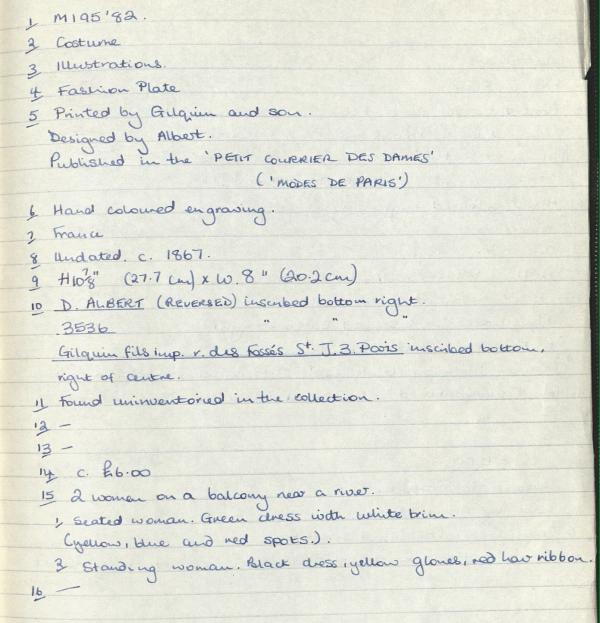 1 M195'82.
2 Costume
3 Illustrations.
4 Fashion Plate
5 Printed by Gilquin and son.
Designed by Albert.
Published in the 'PETIT COURRIER DES DAMES'
('MODES DE PARIS')
6 Hand coloured engraving.
7 France
8 Undated. c. 1867.
9 H10 7/8" (27.7 cm) x W. 8" (20.2cm)
10 D. ALBERT (REVERSED) inscribed bottom right.
3536 " " "
Gilquin fils imp. r. des Fossés St. J. 3. Paris inscribed bottom,
right of centre.
11 Found uninventoried in the collection.
12 —
13 —
14 c. £6.00
15 2 women on a balcony near a river.
1, Seated woman. Green dress with white trim.
(yellow, blue and red spots.).
2 Standing woman. Black dress, yellow gloves, red hair ribbon.
16 —